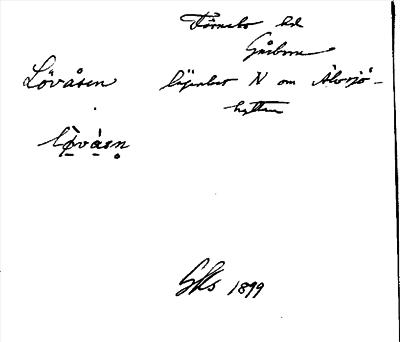 Färnebo hd
Gåsborn
Lövåsen lägenhet N om Älvsjö-
hyttan
lövåsn
GKs 1899